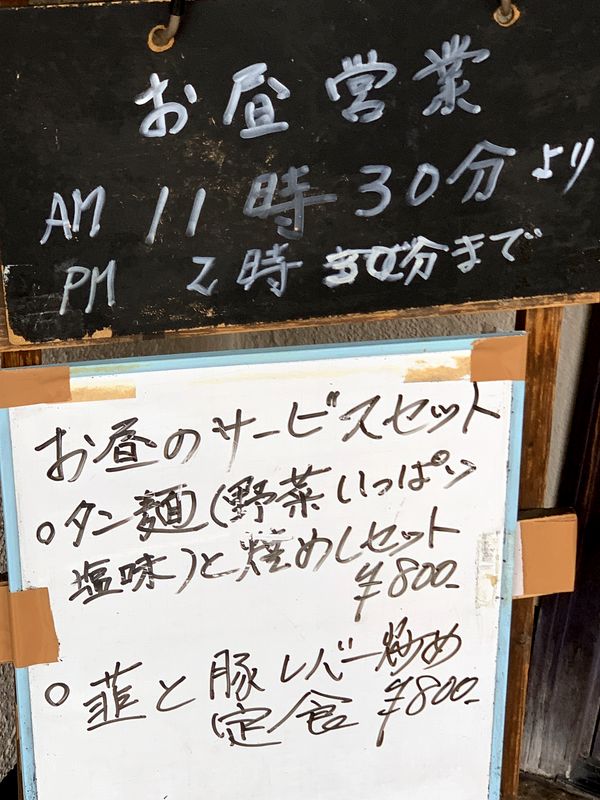 お昼営業
AM 11時30分より
PM 2時30分まで
お昼のサービスセット
○タン麺(野菜いっぱい
塩味)と焼めしセット
¥800-
○韮と豚レバー炒め
定食 ¥800-